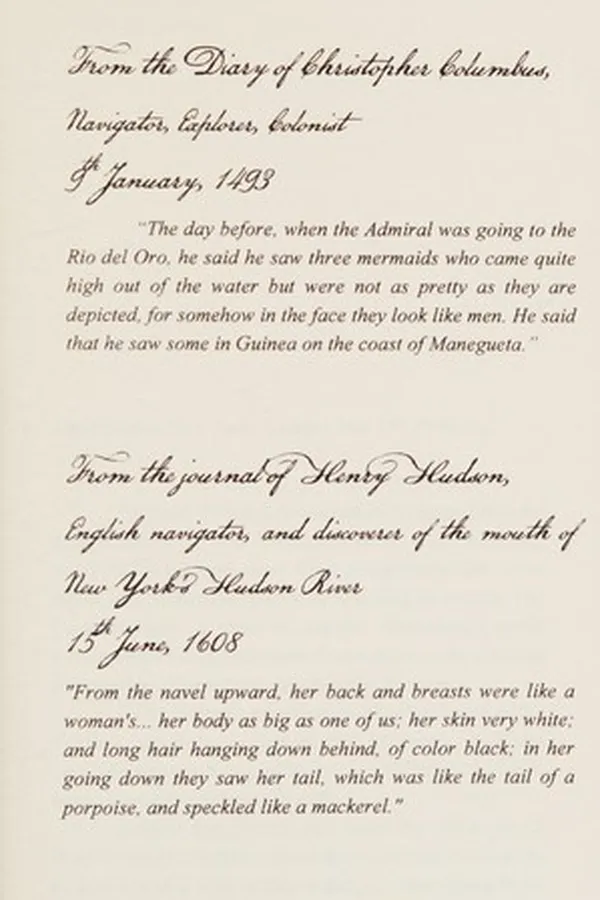 From the Diary of Christopher Columbus,
Navigator, Explorer, Colonist
9th January, 1493
"The day before, when the Admiral was going to the
Rio del Oro, he said he saw three mermaids who came quite
high out of the water but were not as pretty as they are
depicted, for somehow in the face they look like men. He said
that he saw some in Guinea on the coast of Manegueta."
From the journal of Henry Hudson,
English navigator, and discoverer of the mouth of
New York's Hudson River
15th June, 1608
"From the navel upward, her back and breasts were like a
woman's... her body as big as one of us; her skin very white;
and long hair hanging down behind, of color black; in her
going down they saw her tail, which was like the tail of a
porpoise, and speckled like a mackerel."